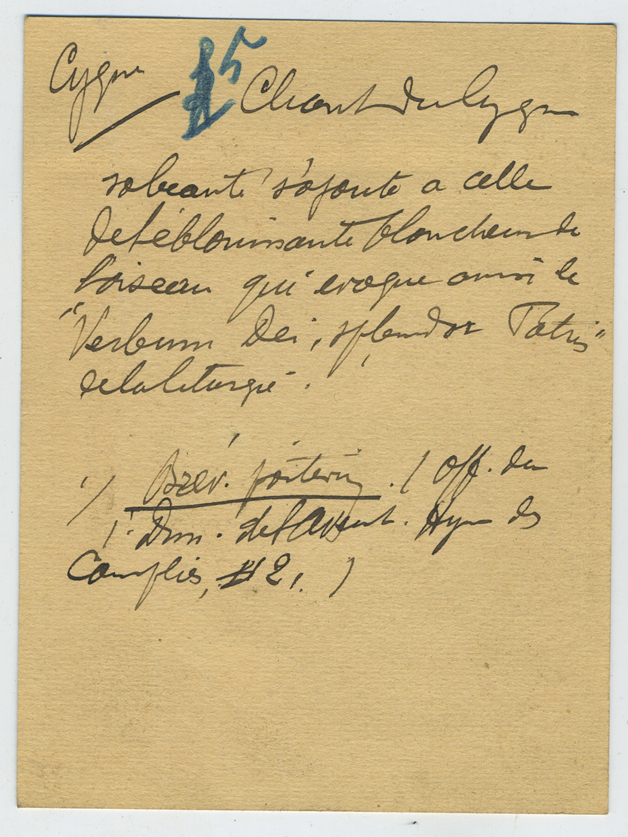 Cygne
5
Chant du Cygne
s'ajoute a celle
de l'éblouissante blancheur de
l'oiseau qui évoque ainsi le
"Verbum Dei, splendor Patris"
de la liturgie.
1/ Brév. poitevin. ( Off. du
1. Dim. de l'Avent. Hym des
Complies, 2. )